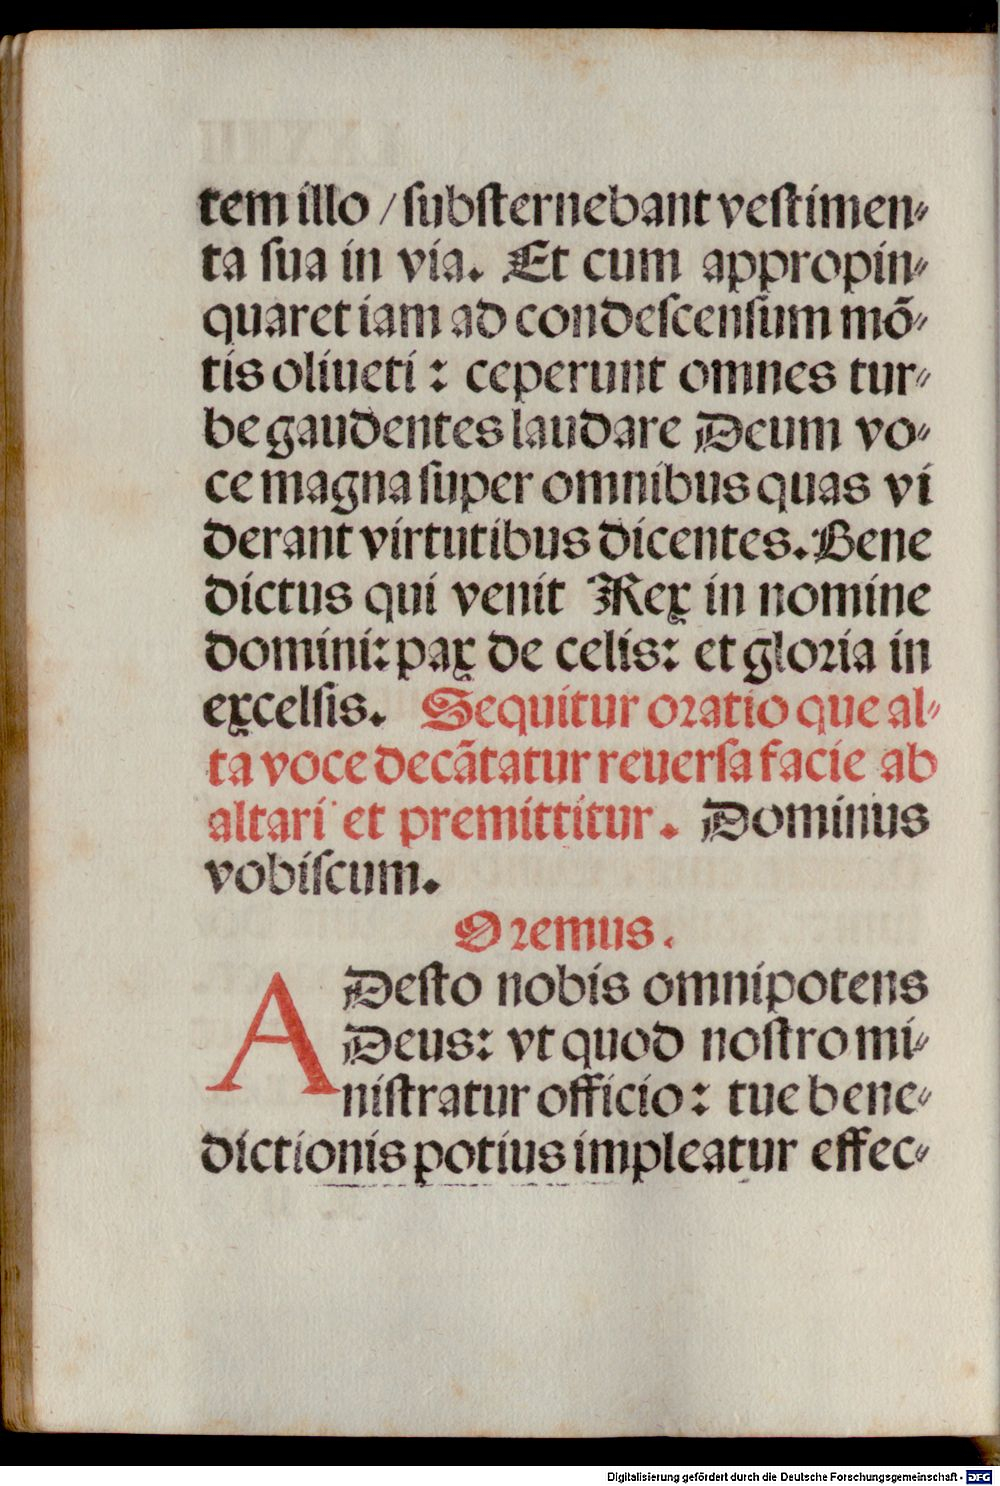 tem illo / ſubſternebant veſtimen⸗
ta ſua in via. Et cum appropin⸗
quaret iam ad condeſcenſum mõ⸗
tis oliueti : ceperunt omnes tur⸗
be gaudentes laudare Deum vo⸗
ce magna ſuper omnibus quas vi
derant virtutibus dicentes. Bene
dictus qui venit Rex in nomine
domini: pax de celis: et gloꝛia in
excelſis. Sequitur oꝛatio que al⸗
ta voce decãtatur reuerſa facie ab
altari et premittitur. Dominus
vobiſcum.
Oꝛemus.
ADeſto nobis omnipotens
Deus: vt quod noſtro mi⸗
niſtratur officio: tue bene⸗
dictionis potius impleatur effec⸗
Digitalisierung gefördert durch die Deutsche Forschungsgemeinschaft - DFG